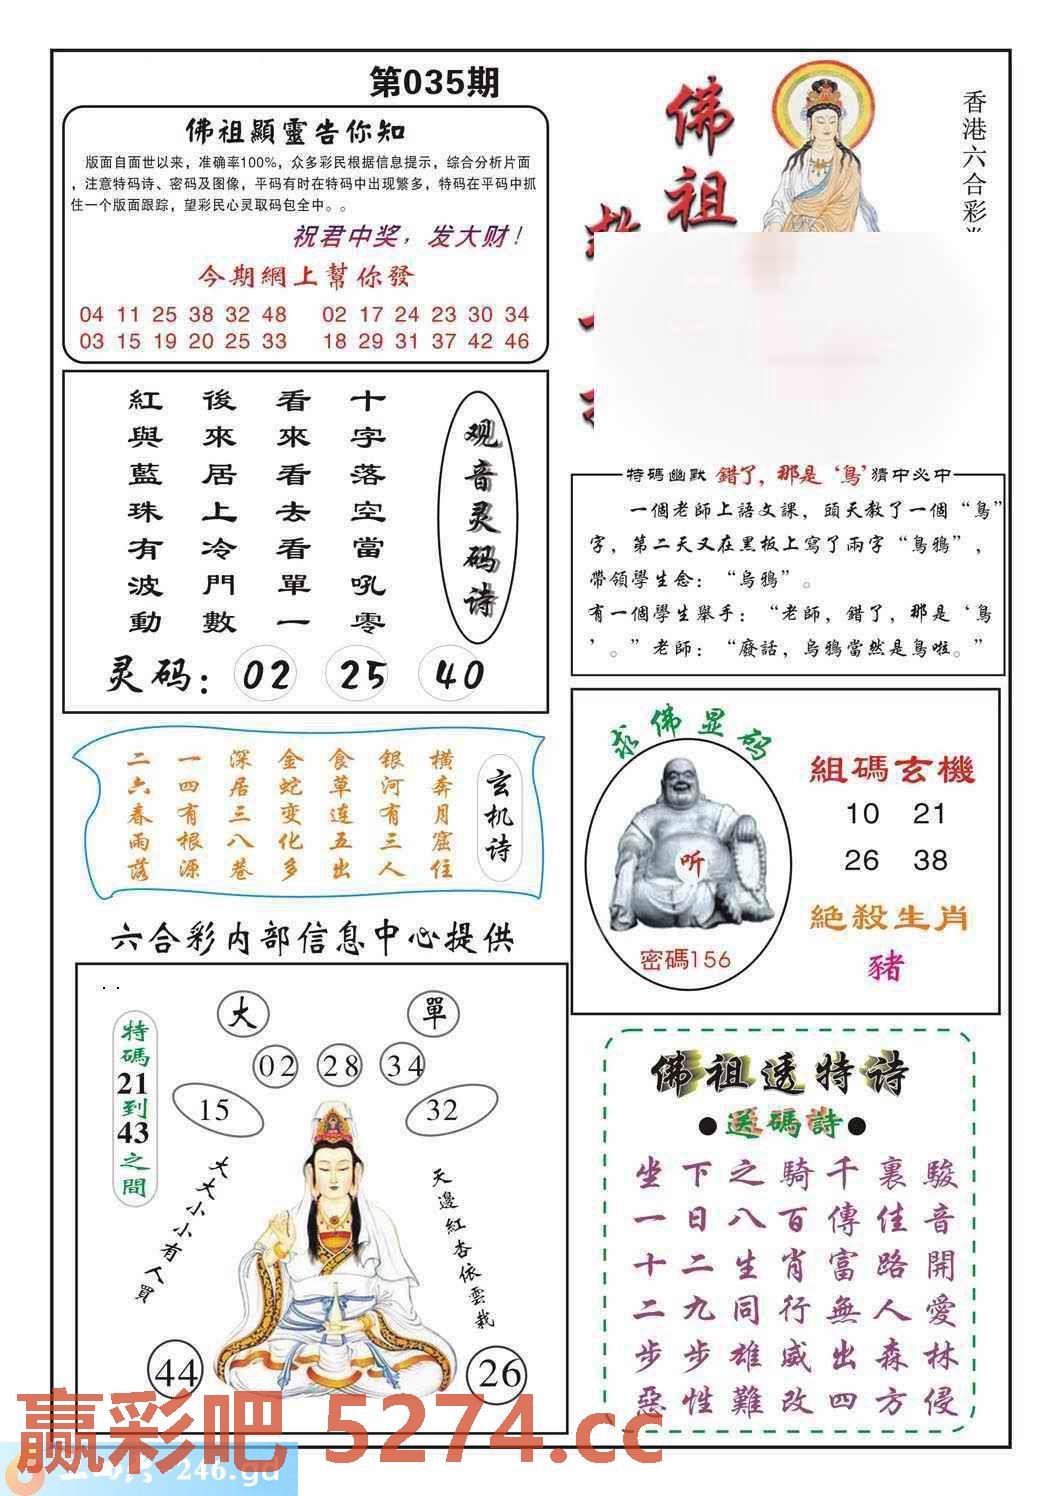 第035期
佛祖顯靈告你知
版面自面世以来，准确率100%，众多彩民根据信息提示，综合分析片面
，注意特码诗、密码及图像，平码有时在特码中出现繁多，特码在平码中抓
住一个版面跟踪，望彩民心灵取码包全中。。
祝君中奖，发大财！
今期網上幫你發
04 11 25 38 32 48 02 17 24 23 30 34
03 15 19 20 25 33 18 29 31 37 42 46
佛祖
香港六合彩
观音灵码诗
十字落空當吼零
看來看去看單一
後來居上冷門數
紅與藍珠有波動
灵码：02 25 40
特碼幽默 錯了，那是‘鳥’猜中必中
一個老師上語文課，頭天教了一個“鳥”
字，第二天又在黑板上寫了兩字“鳥鴉”，
帶領學生念：“烏鴉”。
有一個學生舉手：“老師，錯了，那是‘鳥
’。”老師：“廢話，烏鴉當然是鳥啦。”
玄机诗
橫奔月窟住
银河有三人
食草连五出
金蛇变化多
深居三八巷
一四有根源
二六春雨落
求佛显码
听
密碼156
組碼玄機
10 21
26 38
絕殺生肖
豬
六合彩内部信息中心提供
特碼21到43之間
大 單
02 28 34
15 32
大大小小有人買
天邊紅杏依雲栽
44 26
佛祖透特诗
●送碼詩●
坐下之騎千裏駿
一日八百傳佳音
十二生肖富路開
二九同行無人愛
步步雄威出森林
惡性難改四方侵
赢彩吧 5274.cc
246.gd